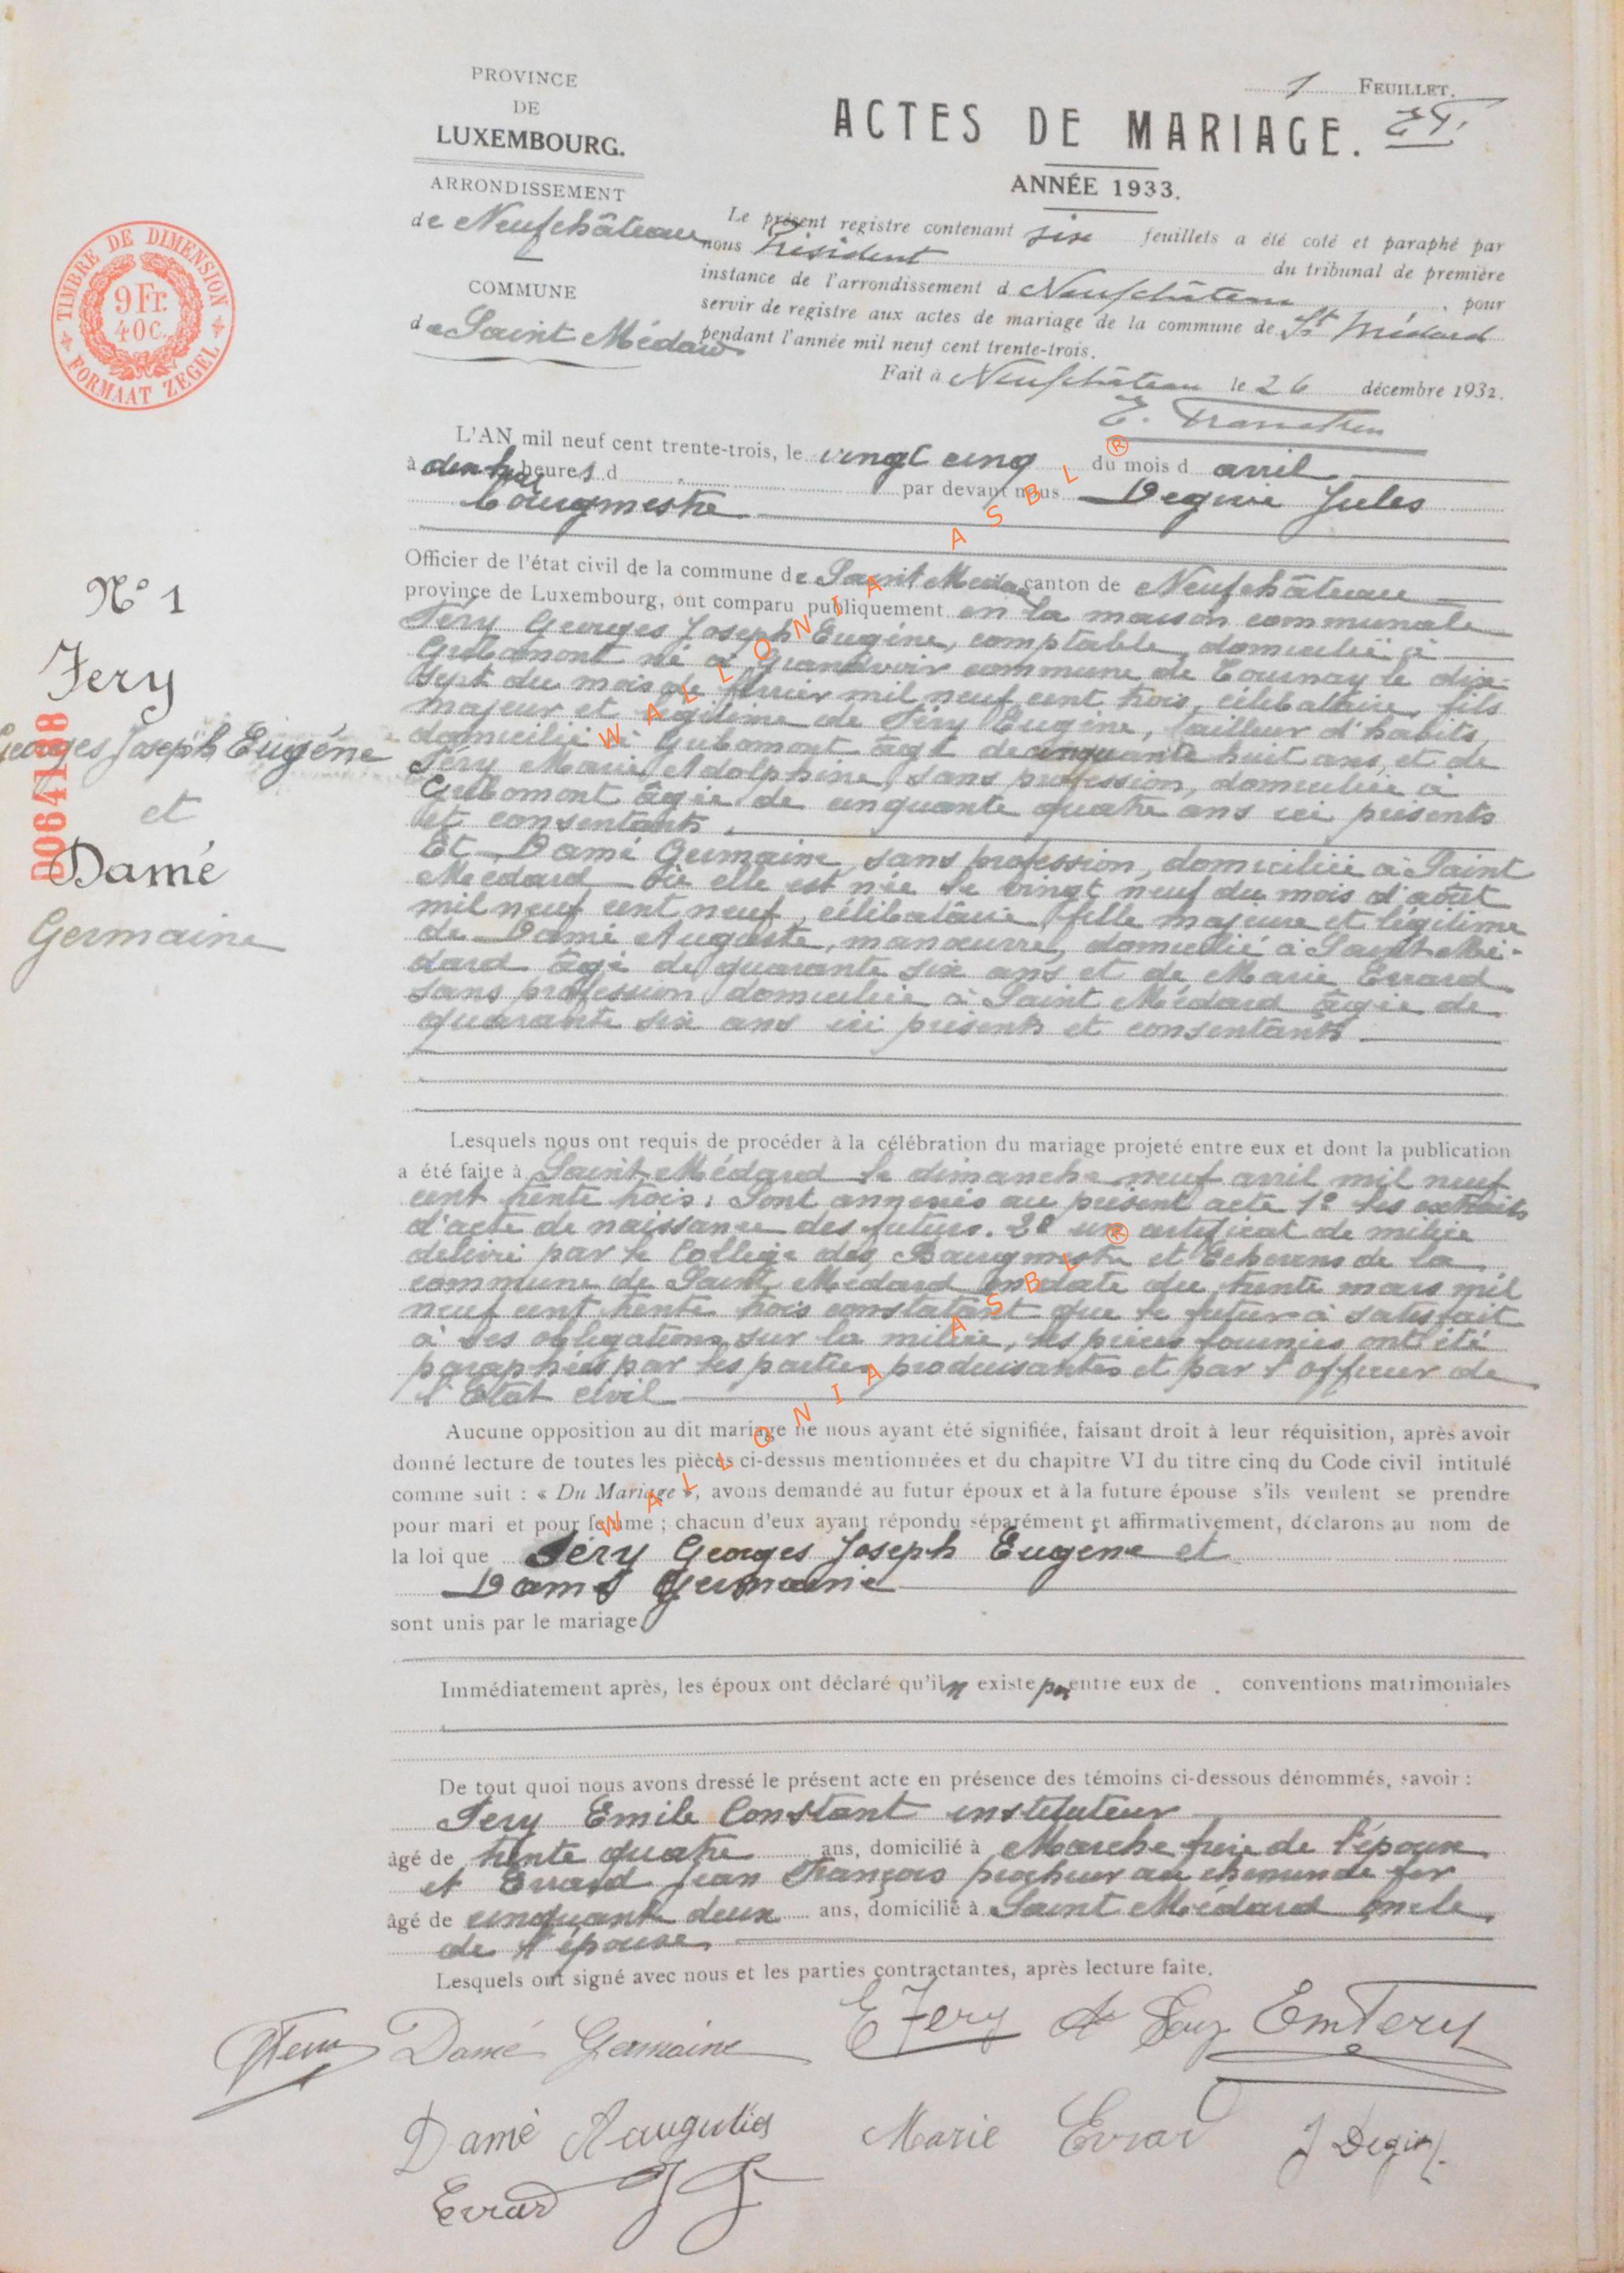 PROVINCE
DE
LUXEMBOURG.
ARRONDISSEMENT
de Neufchâteau
COMMUNE
de Saint Médard
TIMBRE DE DIMENSION
9 Fr.
40 C.
FORMAAT ZEGEL
1 FEUILLET.
ACTES DE MARIAGE.
ANNÉE 1933.
Le présent registre contenant six feuillets a été coté et paraphé par
nous Président du tribunal de première
instance de l'arrondissement d Neufchâteau, pour
servir de registre aux actes de mariage de la commune de St Médard
pendant l'année mil neuf cent trente-trois.
Fait à Neufchâteau le 26 décembre 1932.
L'AN mil neuf cent trente-trois, le vingt cinq du mois d avril
à heures d par devant nous
bourgmestre
Officier de l'état civil de la commune de Saint Médard canton de Neufchâteau
province de Luxembourg, ont comparu publiquement en la maison communale
Féry Georges Joseph Eugène, comptable, domicilié à
Gribomont né à Grandvoir commune de Tournay le dix-
sept du mois de février mil neuf cent trois, célibataire, fils
majeur et légitime de Féry Eugène, tailleur d'habits,
domicilié à Gribomont âgé de cinquante huit ans, et de
Féry Marie Adolphine, sans profession, domiciliée à
Gribomont âgée de cinquante quatre ans ici présents
et consentants.
Et Damé Germaine, sans profession, domiciliée à Saint
Médard où elle est née le vingt neuf du mois d'août
mil neuf cent neuf, célibataire, fille majeure et légitime
de Damé Auguste, manœuvre, domicilié à Saint Mé-
dard âgé de quarante six ans et de Marie Evrard
sans profession domiciliée à Saint Médard âgée de
quarante six ans ici présents et consentants
N° 1
Fery
Georges Joseph Eugéne
et
Damé
Germaine
D064188
Lesquels nous ont requis de procéder à la célébration du mariage projeté entre eux et dont la publication
a été faite à Saint Médard le dimanche neuf avril mil neuf
cent trente trois. Sont annexés au présent acte 1° les extraits
d'acte de naissance des futurs. 2° un certificat de milice
délivré par le Collège des Bourgmestre et Echevins de la
commune de Saint Médard en date du trente mars mil
neuf cent trente trois constatant que le futur à satisfait
à ses obligations sur la milice, les pièces fournies ont été
paraphées par les parties produisantes et par l'officier de
l'Etat civil
Aucune opposition au dit mariage ne nous ayant été signifiée, faisant droit à leur réquisition, après avoir
donné lecture de toutes les pièces ci-dessus mentionnées et du chapitre VI du titre cinq du Code civil intitulé
comme suit : « Du Mariage », avons demandé au futur époux et à la future épouse s'ils veulent se prendre
pour mari et pour femme ; chacun d'eux ayant répondu séparément et affirmativement, déclarons au nom de
la loi que Féry Georges Joseph Eugene et
Damé Germaine
sont unis par le mariage
Immédiatement après, les époux ont déclaré qu'il n existe pas entre eux de . conventions matrimoniales
De tout quoi nous avons dressé le présent acte en présence des témoins ci-dessous dénommés, savoir :
Fery Emile Constant instituteur
âgé de trente quatre ans, domicilié à Marche frère de l'époux
et Evrard Jean François piocheur au chemin de fer
âgé de cinquante deux ans, domicilié à Saint Médard oncle
de l'épouse.
Lesquels ont signé avec nous et les parties contractantes, après lecture faite.
Damé Germaine E Fery Em Fery
Damé Marie Evrar
Evrard
WALLONIA ASBL ®
WALLONIA ASBL ®